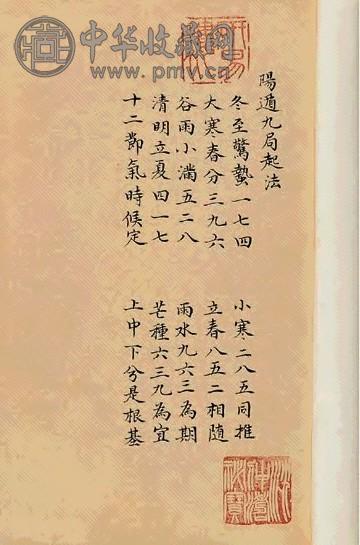 中华收藏网
www.pmv.cn
陽遁九局起法
冬至驚蟄一七四 小寒二八五同推
大寒春分三九六 立春八五二相随
谷雨小滿五二八 雨水九六三為期
清明立夏四一七 芒種六三九為宜
十二節氣時候定 上中下兮是根基